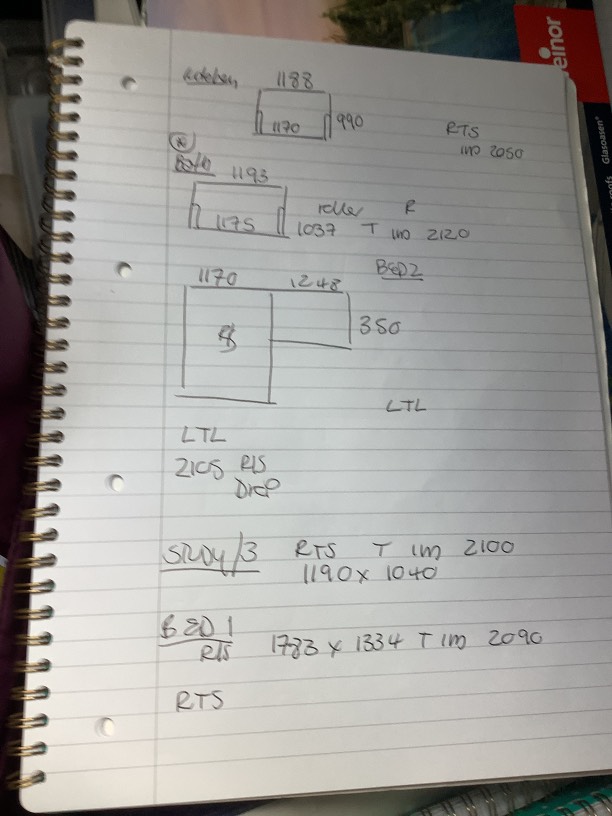 Kitchen 1188
1170 990
RTS
IM 2050
R
Bath 1193
1175
roller R
1037 T IM 2120
BED2
1170 1248
350
LTL
LTL
2105 RTS
DROP
STUDY/3 RTS T IM 2100
1190 x 1040
BED 1 1783 x 1334 T IM 2090
RTS
RTS
einor
Glasoasen